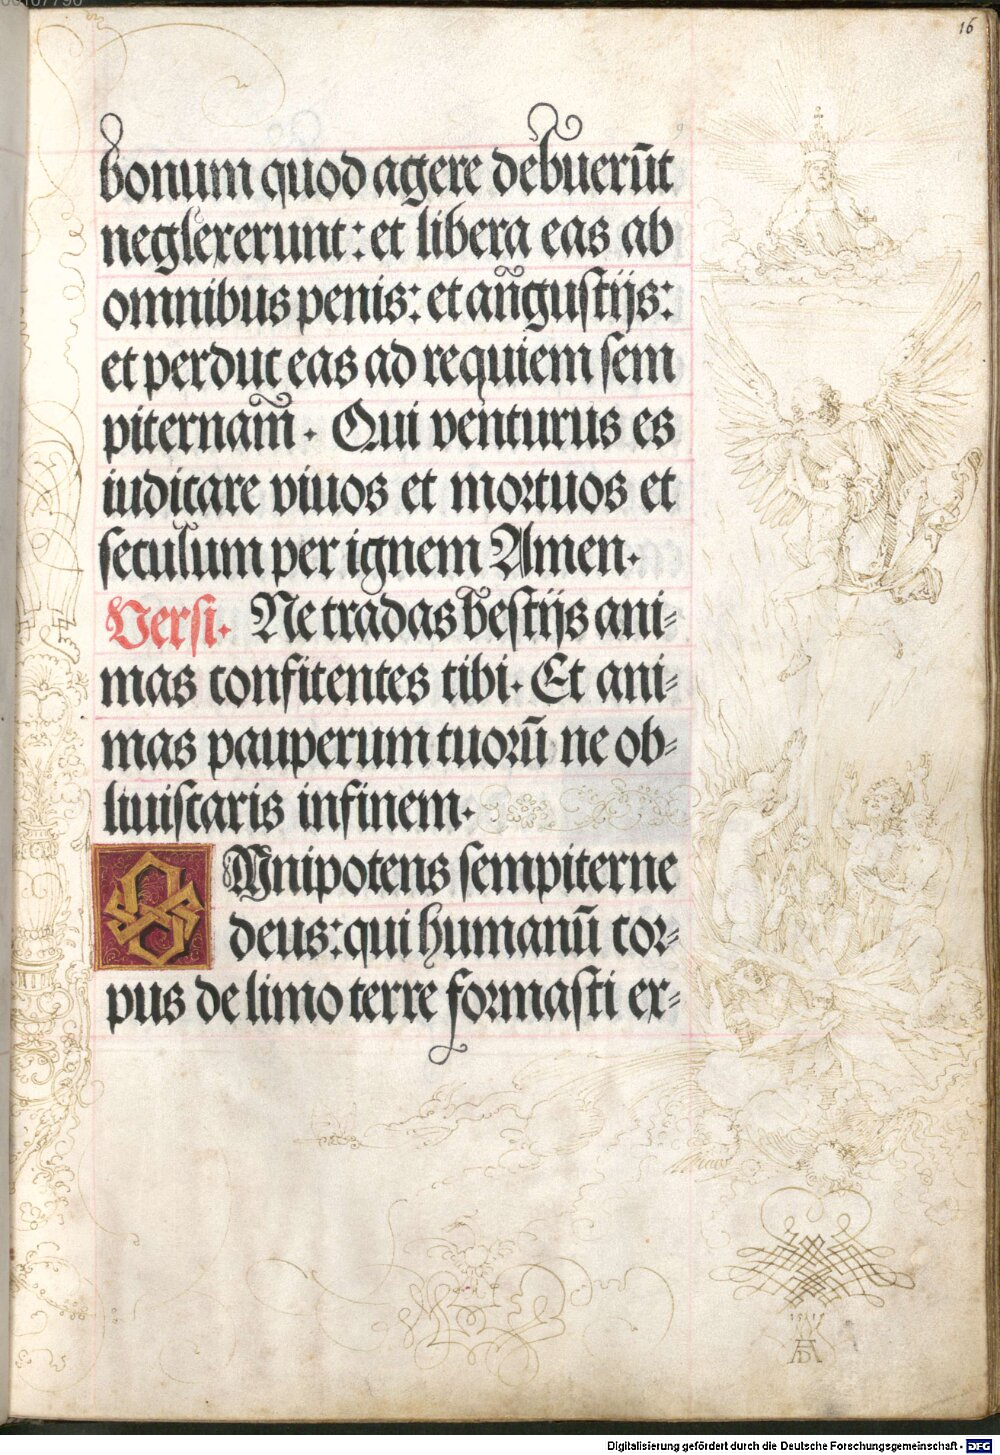 16
bonum quod agere debuerūt
neglexerunt : et libera eas ab
omnibus penis : et an̄gustijs :
et perduc eas ad requiem sem
piternam̄ . Qui venturus es
iudicare viuos et mortuos et
seculum per ignem Amen .
Versi . Ne tradas bestijs ani=
mas confitentes tibi . Et ani=
mas pauperum tuorū ne ob=
liuiscaris infinem .
OMnipotens sempiterne
deus : qui humanū cor=
pus de limo terre formasti ex=
1515
AD
Digitalisierung gefördert durch die Deutsche Forschungsgemeinschaft - DFG